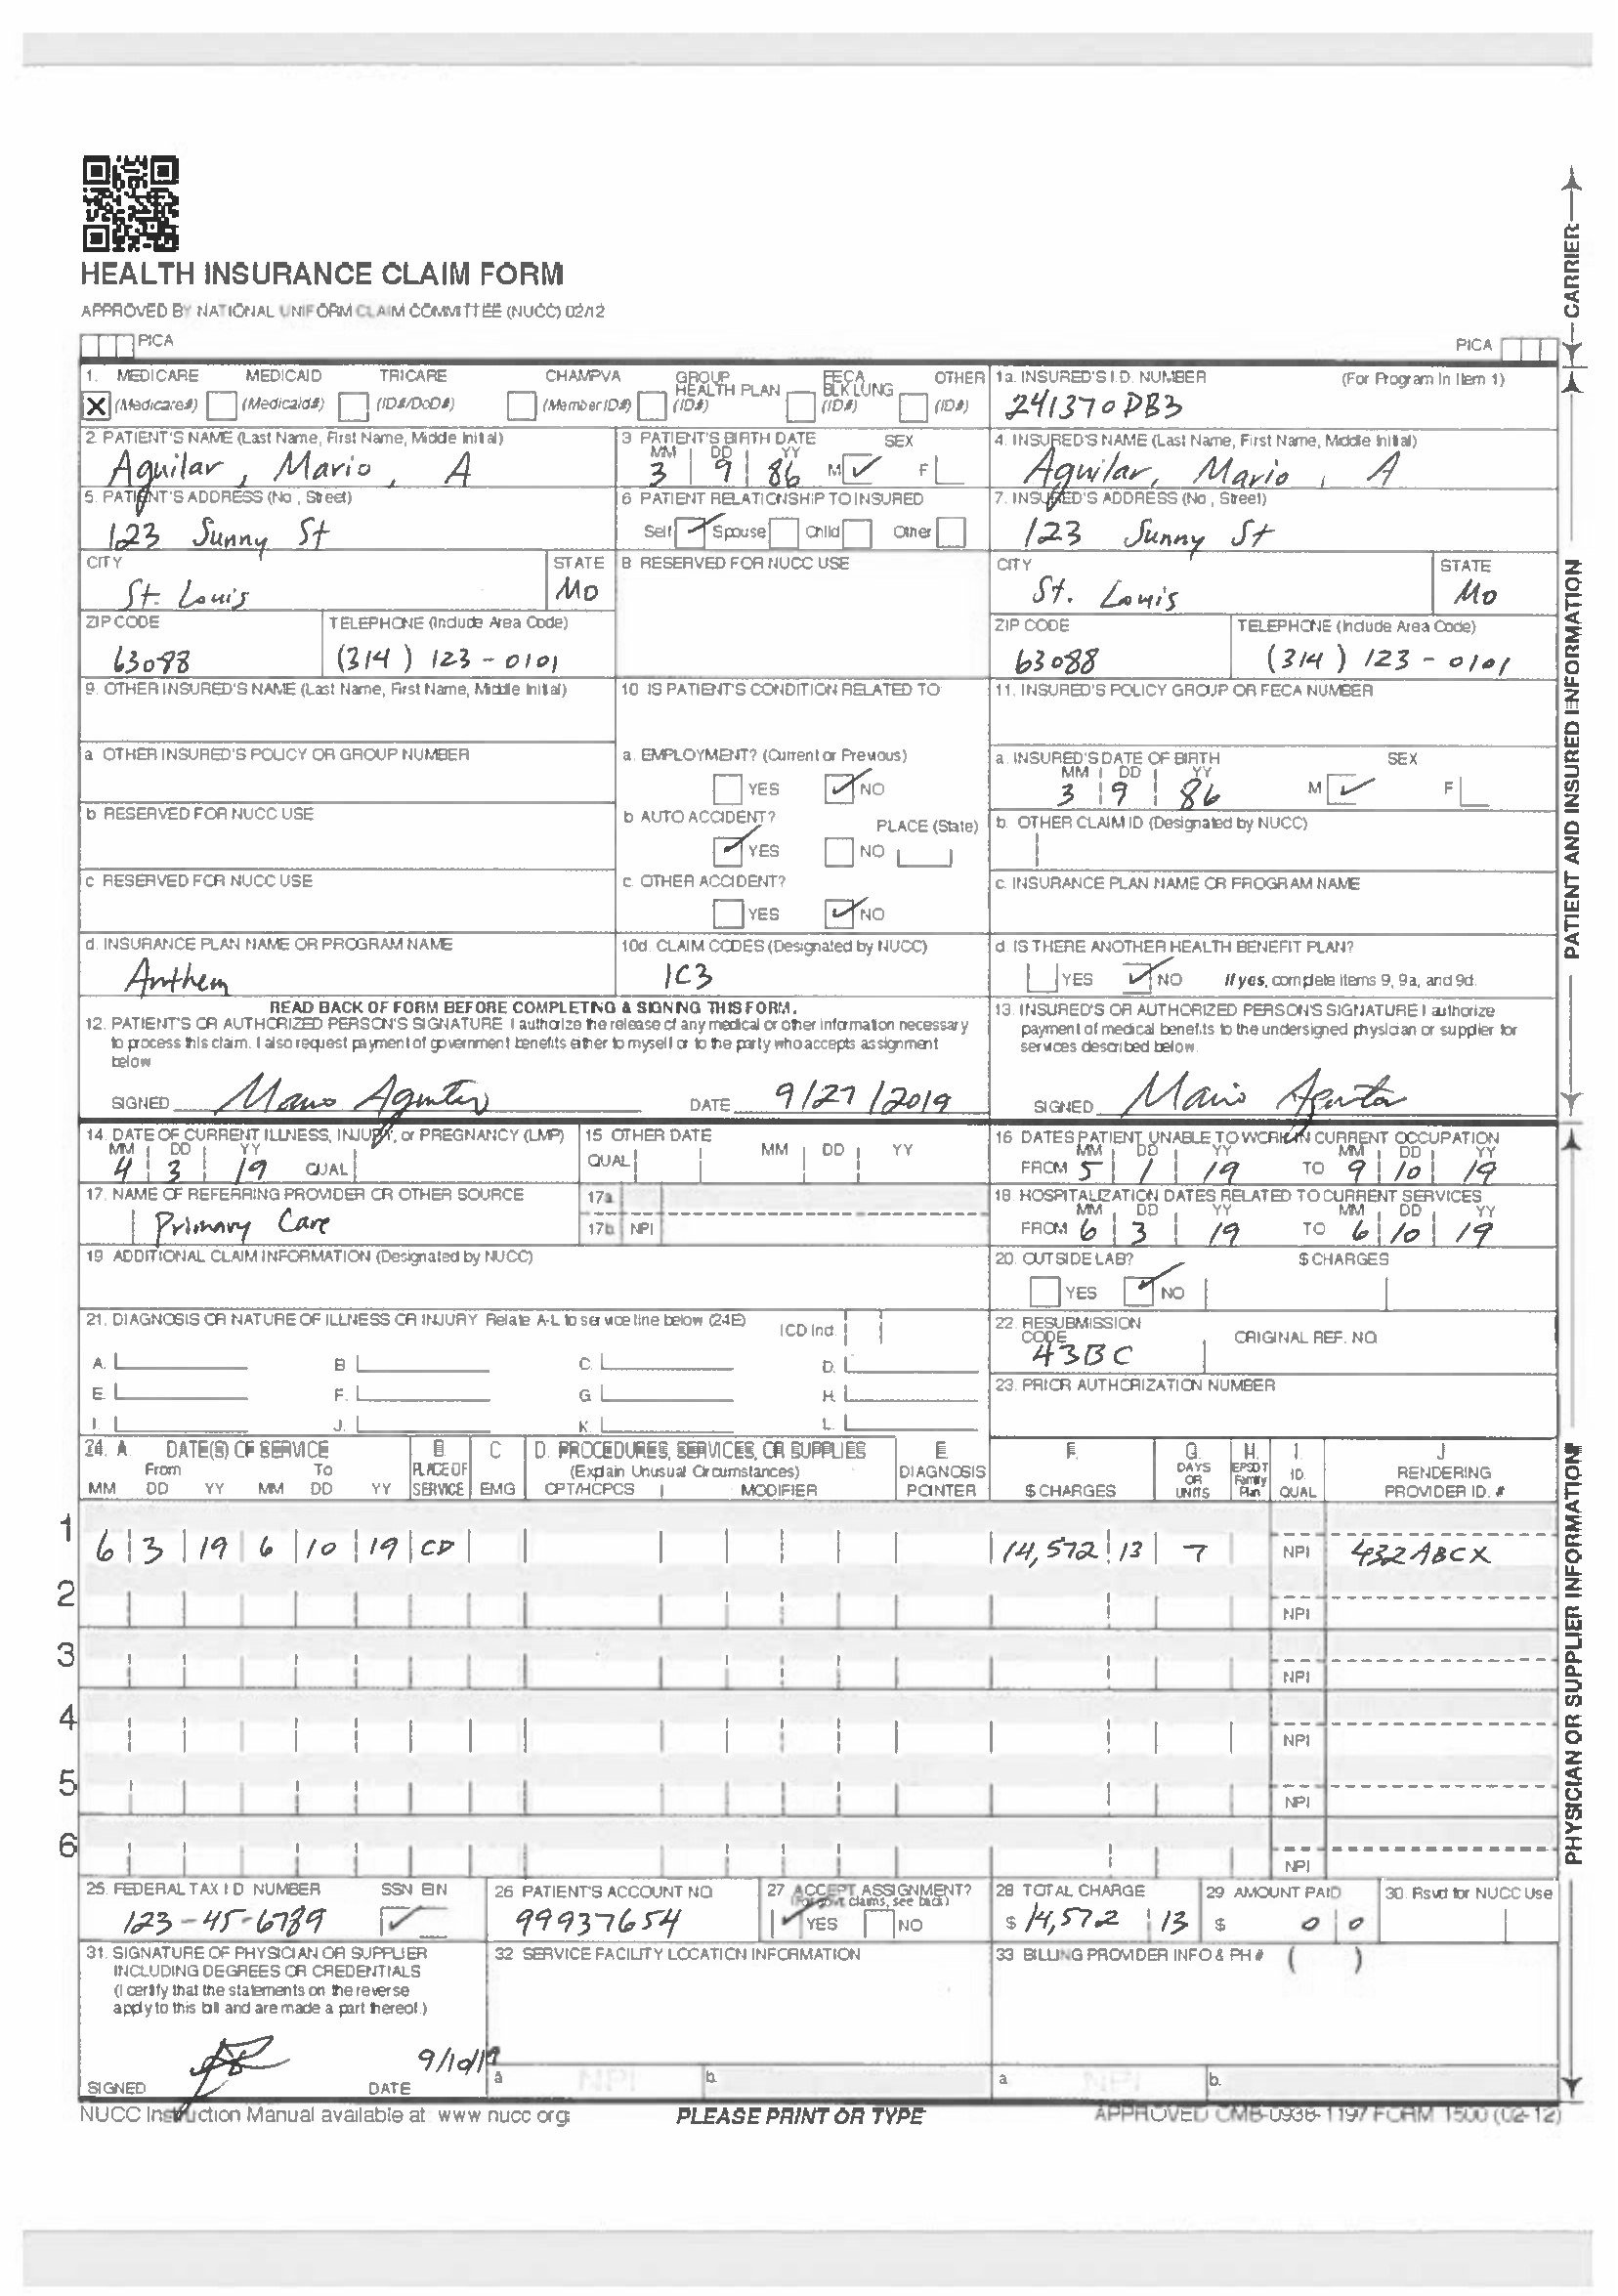 HEALTH INSURANCE CLAIM FORM
APPROVED BY NATIONAL UNIFORM CLAIM COMMITTEE (NUCC) 02/12
PICA
PICA
CARRIER
1. MEDICARE MEDICAID TRICARE CHAMPVA GROUP HEALTH PLAN FECA BLK LUNG OTHER
X (Medicare#) (Medicaid#) (ID#/DoD#) (Member ID#) (ID#) (ID#) (ID#)
1a. INSURED'S I.D. NUMBER (For Program in Item 1)
241370DB3
2. PATIENT'S NAME (Last Name, First Name, Middle Initial)
Aguilar, Mario, A
3 PATIENT'S BIRTH DATE SEX
MM DD YY
3 9 86 M ✓ F
4. INSURED'S NAME (Last Name, First Name, Middle Initial)
Aguilar, Mario, A
5. PATIENT'S ADDRESS (No., Street)
123 Sunny St
6 PATIENT RELATIONSHIP TO INSURED
Self ✓ Spouse Child Other
7. INSURED'S ADDRESS (No., Street)
123 Sunny St
CITY STATE
St. Louis MO
8 RESERVED FOR NUCC USE
CITY STATE
St. Louis MO
ZIP CODE TELEPHONE (Include Area Code)
63088 (314) 123-0101
ZIP CODE TELEPHONE (Include Area Code)
63088 (314) 123-0101
PATIENT AND INSURED INFORMATION
9. OTHER INSURED'S NAME (Last Name, First Name, Middle Initial)
10 IS PATIENT'S CONDITION RELATED TO
11. INSURED'S POLICY GROUP OR FECA NUMBER
a OTHER INSURED'S POLICY OR GROUP NUMBER
a. EMPLOYMENT? (Current or Previous)
YES ✓ NO
a. INSURED'S DATE OF BIRTH SEX
MM DD YY
3 9 86 M ✓ F
b RESERVED FOR NUCC USE
b AUTO ACCIDENT? PLACE (State)
✓ YES NO
b. OTHER CLAIM ID (Designated by NUCC)
c RESERVED FOR NUCC USE
c. OTHER ACCIDENT?
YES ✓ NO
c. INSURANCE PLAN NAME OR PROGRAM NAME
d. INSURANCE PLAN NAME OR PROGRAM NAME
Anthem
10d. CLAIM CODES (Designated by NUCC)
1C3
d IS THERE ANOTHER HEALTH BENEFIT PLAN?
YES ✓ NO If yes, complete items 9, 9a, and 9d.
READ BACK OF FORM BEFORE COMPLETING & SIGNING THIS FORM.
12. PATIENT'S OR AUTHORIZED PERSON'S SIGNATURE I authorize the release of any medical or other information necessary
to process this claim. I also request payment of government benefits either to myself or to the party who accepts assignment
below
SIGNED Mario Aguilar DATE 9/27/2019
13. INSURED'S OR AUTHORIZED PERSON'S SIGNATURE I authorize
payment of medical benefits to the undersigned physician or supplier for
services described below.
SIGNED Mario Aguilar
14. DATE OF CURRENT ILLNESS, INJURY, or PREGNANCY (LMP)
MM DD YY
4 3 19 QUAL
15 OTHER DATE
QUAL MM DD YY
16 DATES PATIENT UNABLE TO WORK IN CURRENT OCCUPATION
MM DD YY MM DD YY
FROM 5 1 19 TO 9 10 19
17. NAME OF REFERRING PROVIDER OR OTHER SOURCE
Primary Care
17a
17b NPI
18 HOSPITALIZATION DATES RELATED TO CURRENT SERVICES
MM DD YY MM DD YY
FROM 6 3 19 TO 6 10 19
19 ADDITIONAL CLAIM INFORMATION (Designated by NUCC)
20. OUTSIDE LAB? $ CHARGES
YES ✓ NO
21. DIAGNOSIS OR NATURE OF ILLNESS OR INJURY Relate A-L to service line below (24E) ICD Ind.
A. B C. D.
E. F. G H.
I. J. K. L.
22. RESUBMISSION
CODE ORIGINAL REF. NO
43BC
23. PRIOR AUTHORIZATION NUMBER
24. A DATE(S) OF SERVICE B C D. PROCEDURES, SERVICES, OR SUPPLIES E F. G. H. I. J
From To PLACE OF (Explain Unusual Circumstances) DIAGNOSIS DAYS OR UNITS EPSDT Family Plan ID. RENDERING
MM DD YY MM DD YY SERVICE EMG CPT/HCPCS MODIFIER POINTER $ CHARGES QUAL PROVIDER ID. #
1
6 3 19 6 10 19 CD 14,572 13 7 NPI 432ABCX
2
NPI
3
NPI
4
NPI
5
NPI
6
NPI
PHYSICIAN OR SUPPLIER INFORMATION
25. FEDERAL TAX I D NUMBER SSN EIN
123-45-6789 ✓
26 PATIENT'S ACCOUNT NO
99937654
27 ACCEPT ASSIGNMENT?
(For govt claims, see back)
✓ YES NO
28 TOTAL CHARGE
$ 14,572 13
29 AMOUNT PAID
$ 0 0
30. Rsvd for NUCC Use
31. SIGNATURE OF PHYSICIAN OR SUPPLIER
INCLUDING DEGREES OR CREDENTIALS
(I certify that the statements on the reverse
apply to this bill and are made a part thereof.)
9/10/19
SIGNED DATE
32 SERVICE FACILITY LOCATION INFORMATION
a NPI b.
33 BILLING PROVIDER INFO & PH # ( )
a. NPI b.
NUCC Instruction Manual available at: www nucc org
PLEASE PRINT OR TYPE
APPROVED OMB-0938-1197 FORM 1500 (02-12)